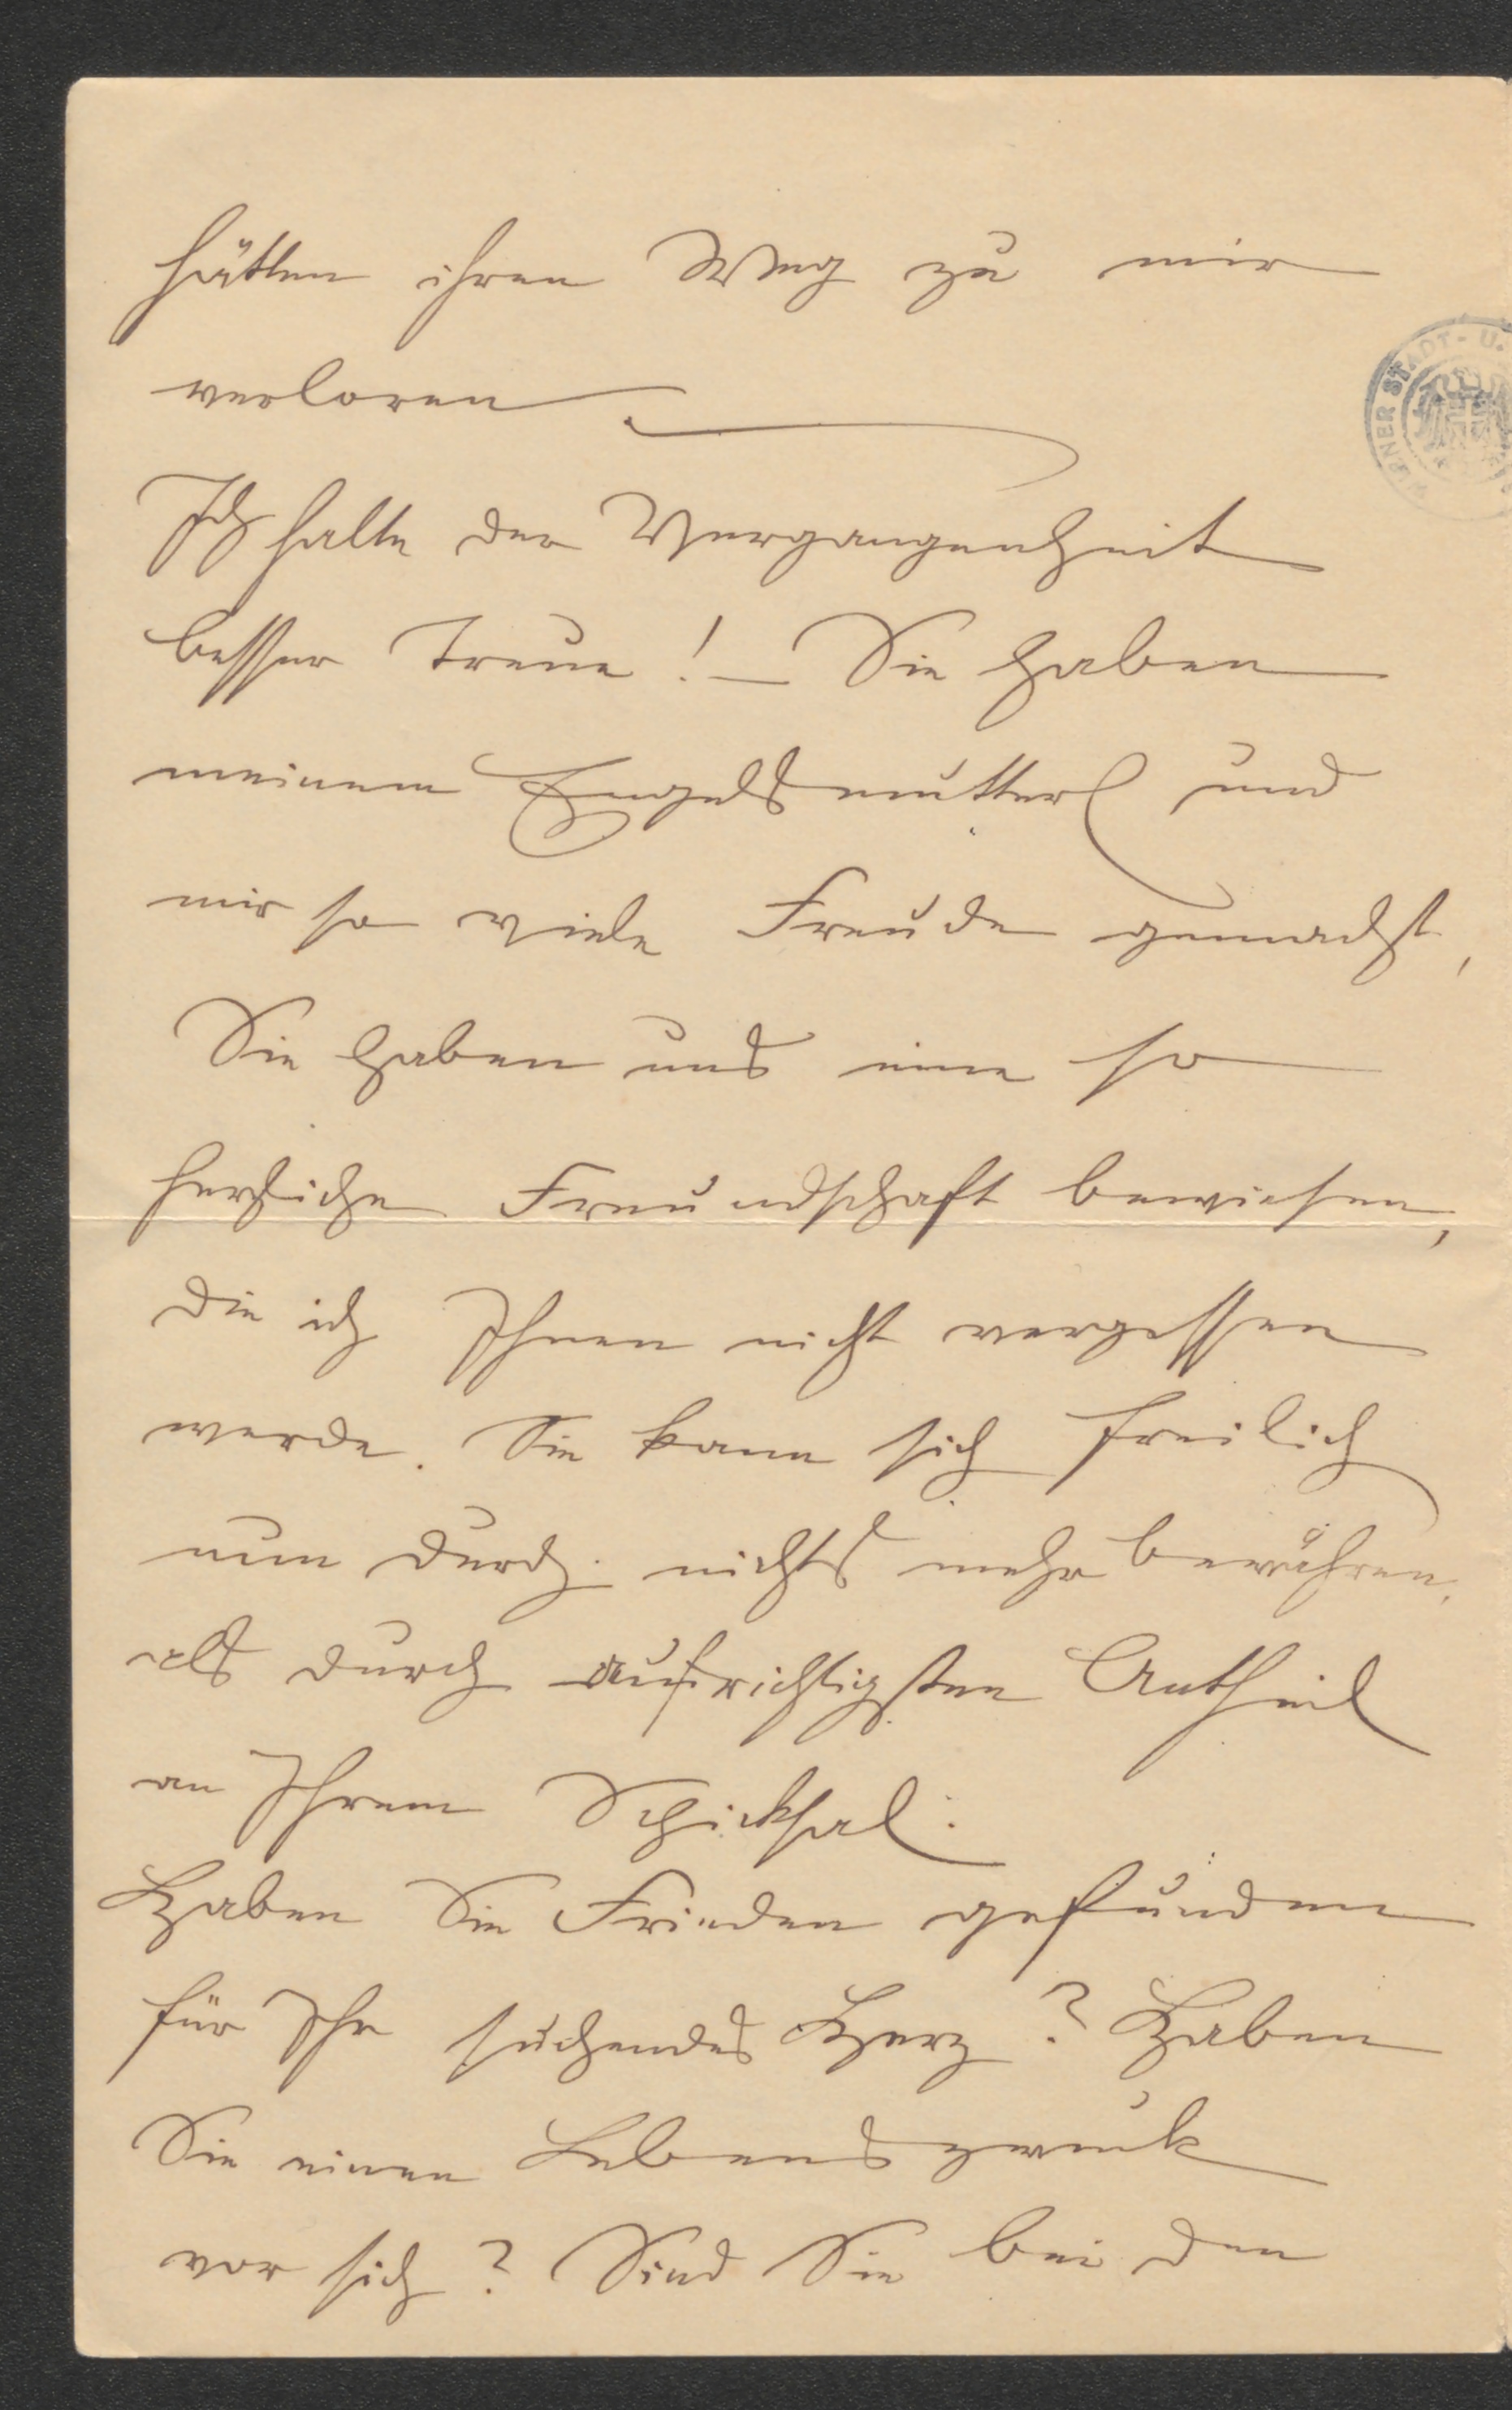 hätten ihren Weg zu mir
verloren.
WIENER STADT- U.
Ich halte der Vergangenheit
besser Treue! – Sie haben
meinem Engelsmutterl und
mir so viele Freude gemacht,
Sie haben uns eine so
herzliche Freundschaft bewiesen,
die ich Ihnen nicht vergessen
werde. Sie kann sich freilich
nun durch nichts mehr bewähren,
als durch aufrichtigsten Antheil
an Ihrem Schicksal.
Haben Sie Frieden gefunden
für Ihr suchendes Herz? Haben
Sie einen Lebenszweck
vor sich? Sind Sie bei den